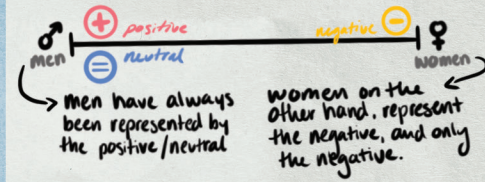 positive
negative
neutral
men
women
men have always
been represented by
the positive/neutral
women on the
other hand, represent
the negative, and only
the negative.